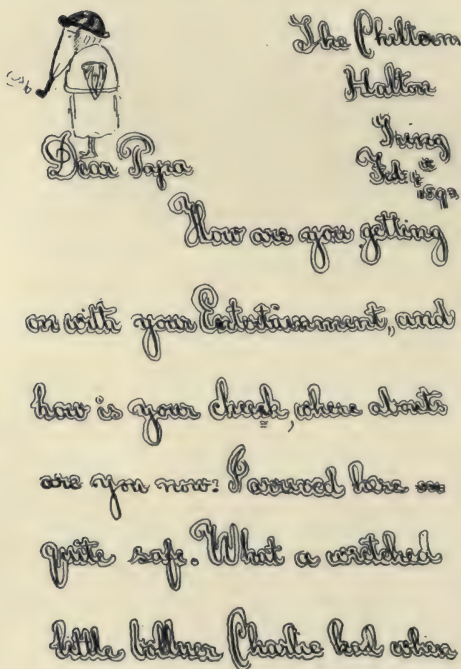 The Chiltern
Halton
Tring
Feb
Dear Papa
How are you getting
on with your Entertainment, and
how is your cheek, where abouts
are you now? I arrived here
quite safe. What a wretched
little Charlie had when